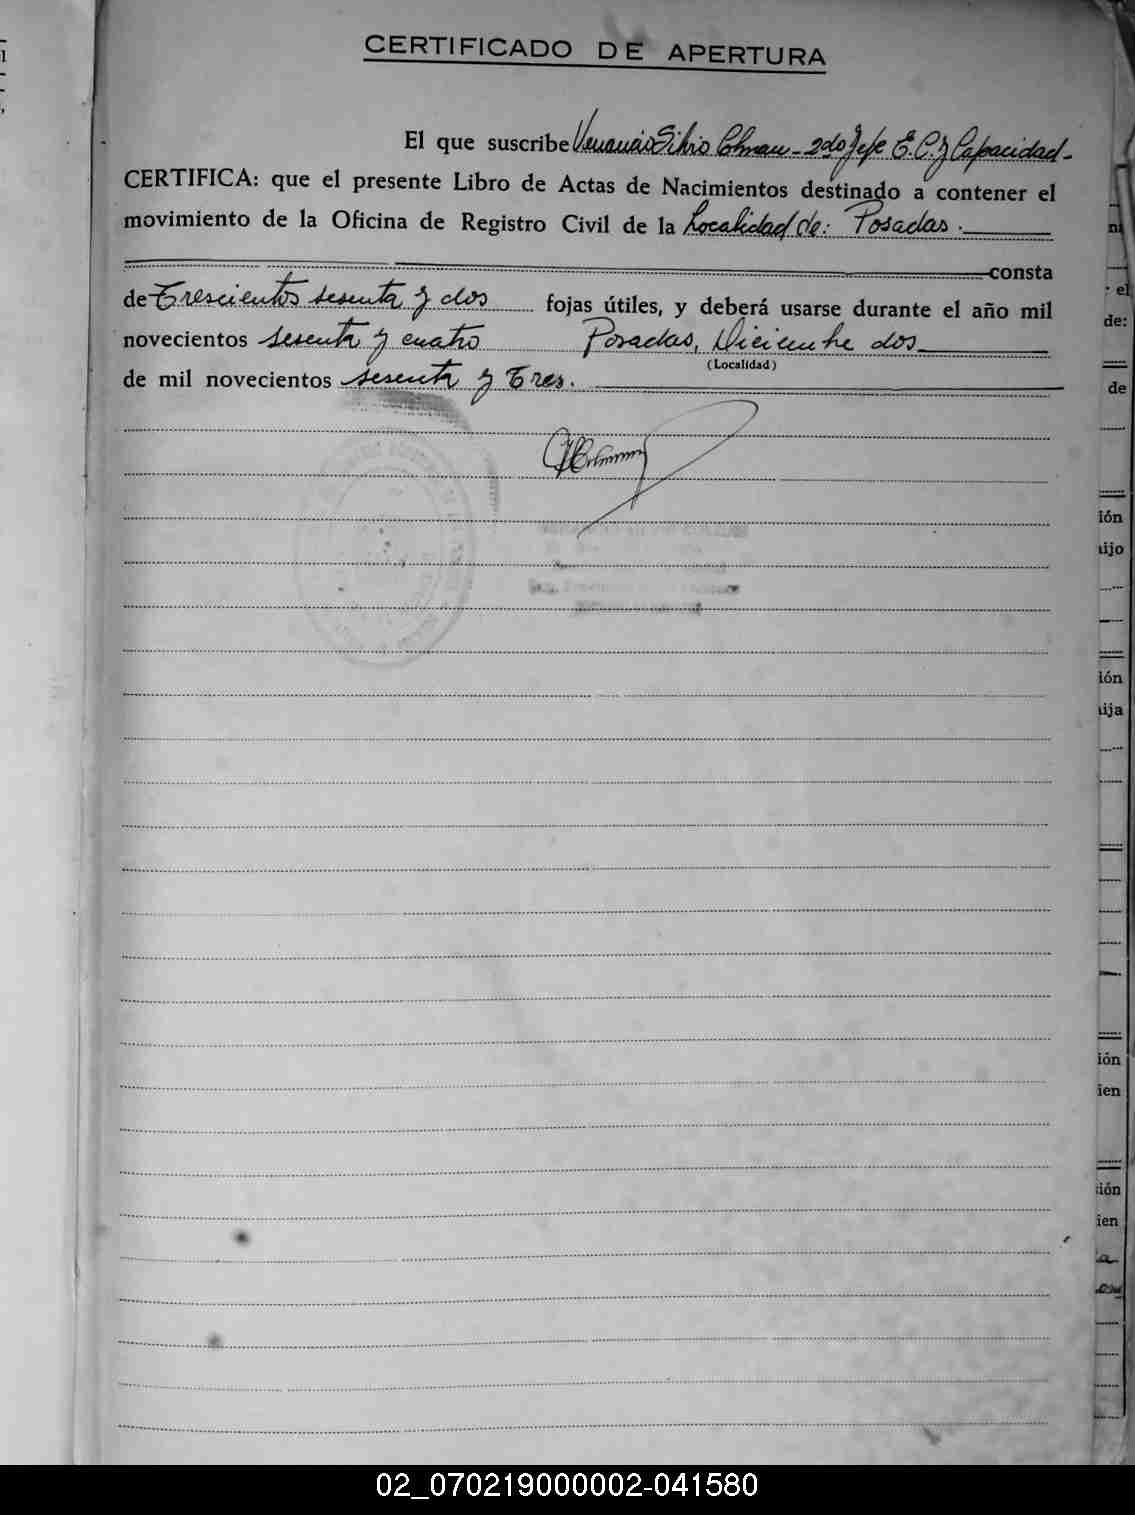 CERTIFICADO DE APERTURA
El que suscribe Venancio Silvio Colman - 2do Jefe E. C. y Capacidad -
CERTIFICA: que el presente Libro de Actas de Nacimientos destinado a contener el
movimiento de la Oficina de Registro Civil de la Localidad de: Posadas.
consta
de Trescientos sesenta y dos fojas útiles, y deberá usarse durante el año mil
novecientos sesenta y cuatro Posadas, Diciembre dos
(Localidad)
de mil novecientos sesenta y Tres.
ni
el
de:
de
ión
ijo
ión
ija
ión
ien
ión
ien
02_070219000002-041580